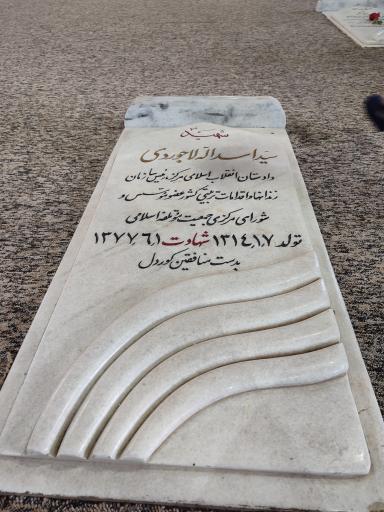 شهید
سید اسدالله لاجوردی
دادستان انقلاب اسلامی مرکز، رئیس سازمان
زندانها و اقدامات تربیتی کشور عضو مؤسس و
شورای مرکزی جمعیت مؤتلفه اسلامی
تولد ۱۳۱۴،۱،۷ شهادت ۱۳۷۷،۶،۱
بدست منافقین کوردل